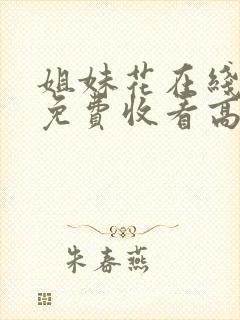 姐妹花在綫
免費收看高
朱春燕